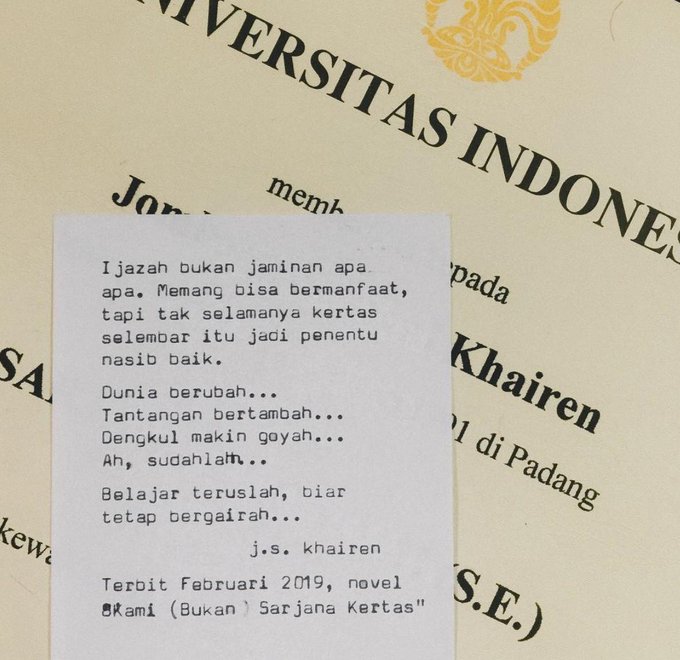 NIVERSITAS INDONES
memb
epada
Khairen
91 di Padang
SA
kewa
(S.E.)
Ijazah bukan jaminan apa-
apa. Memang bisa bermanfaat,
tapi tak selamanya kertas
selembar itu jadi penentu
nasib baik.
Dunia berubah...
Tantangan bertambah...
Dengkul makin goyah...
Ah, sudahlah...
Belajar teruslah, biar
tetap bergairah...
j.s. khairen
Terbit Februari 2019, novel
"Kami (Bukan) Sarjana Kertas"